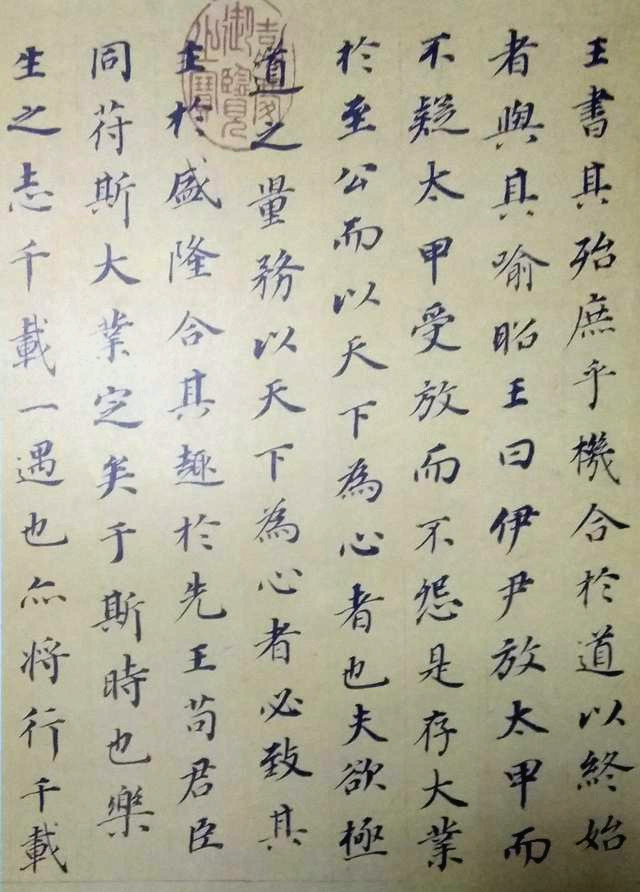 王書其殆庶乎機合於道以終始
者與其喻昭王曰伊尹放太甲而
不疑太甲受放而不怨是存大業
於至公而以天下為心者也夫欲極
道之量務以天下為心者必致其
主於盛隆合其趣於先王苟君臣
同苻斯大業定矣于斯時也樂
生之志千載一遇也亦將行千載